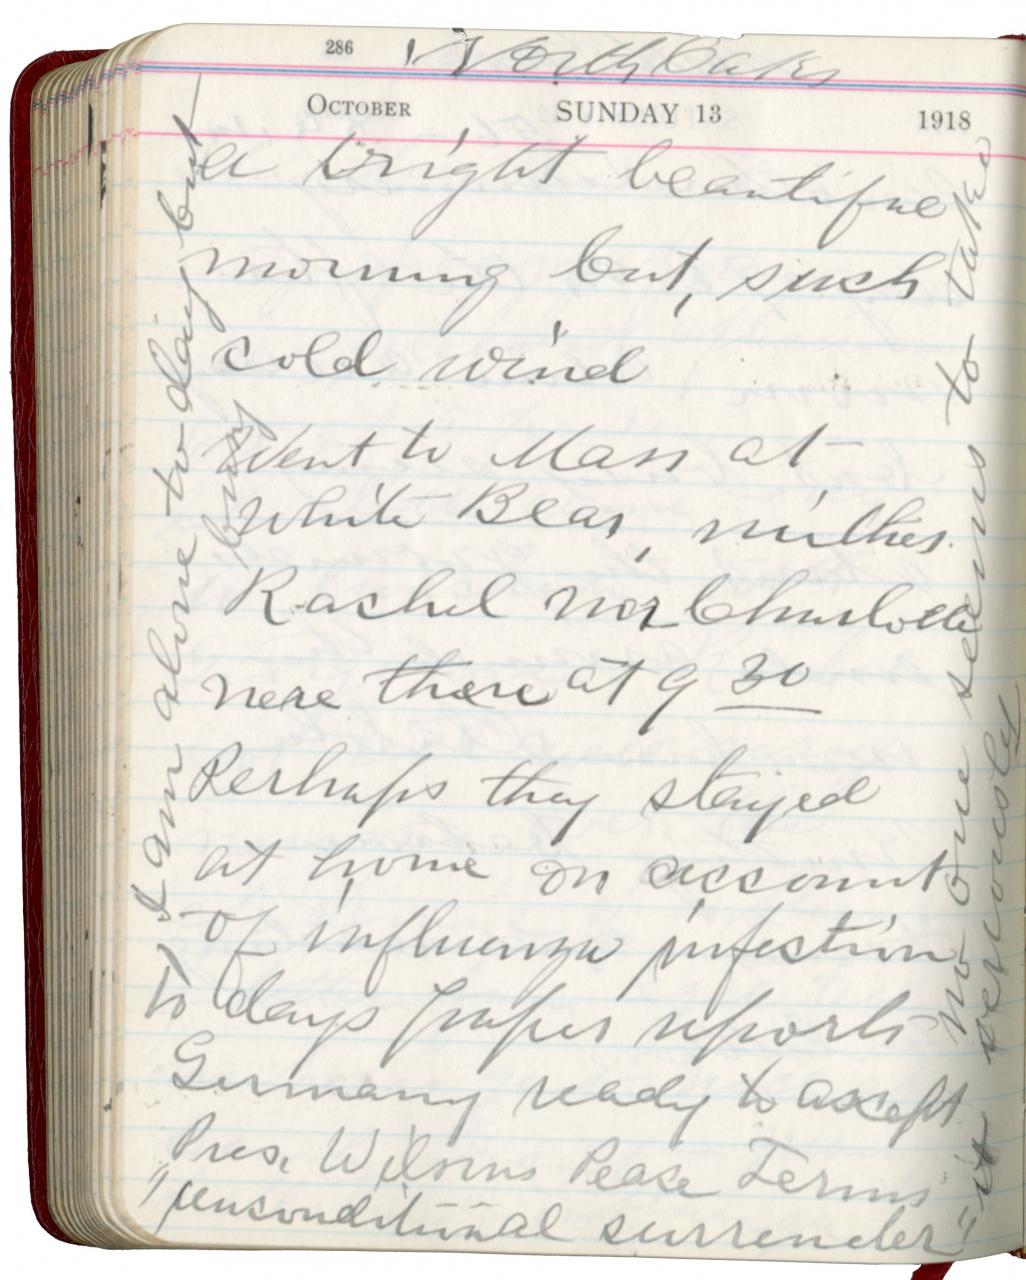 286
North Oaks
OCTOBER SUNDAY 13 1918
a bright beautiful
morning but, such
cold wind
Went to Mass at
White Bear, neither
Rachel nor Charlotte
were there at 9 30
Perhaps they stayed
at home on account
of influenza infection
to days paper reports
Germany ready to accept
Pres. Wilsons Pease Terms
"unconditional surrender"
no one seems to take
it seriously
I am alone to day but
busy